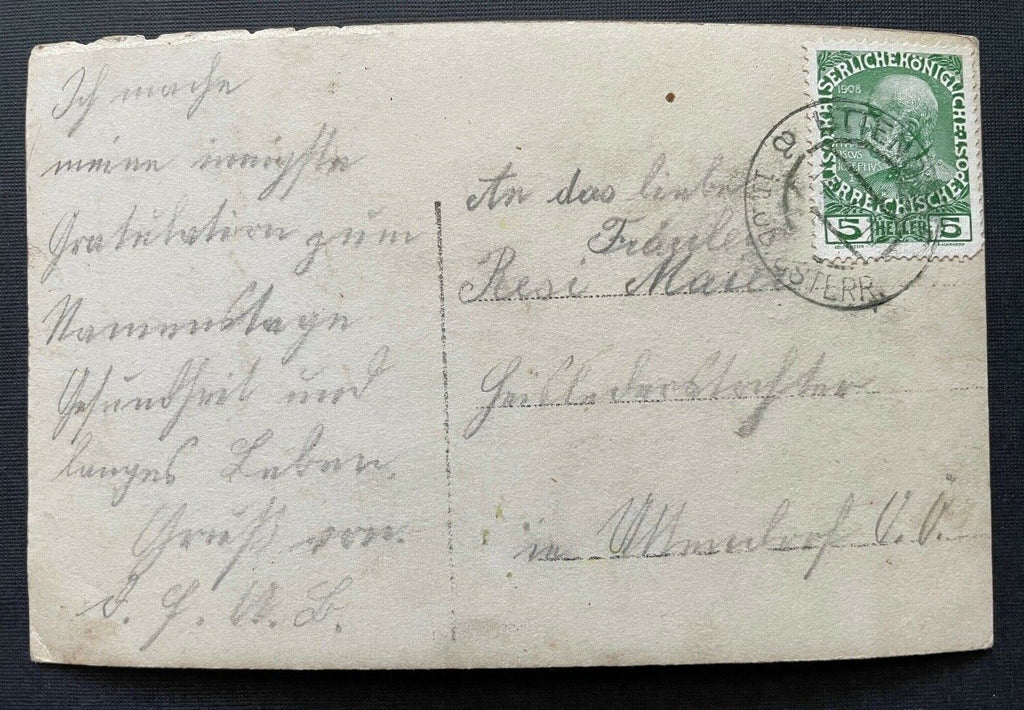 Ich mache
meine innigste
Gratulation zum
Namenstage
Gesundheit und
langes Leben.
Gruß von
J. H. A. B.
An das liebe
Fräulein
Resi Maier
in Uttendorf O.Ö.
KAISERLICHEKÖNIGLICHE
ÖSTERREICHISCHE
1908
5 HELLER 5
OB. ÖSTERR.